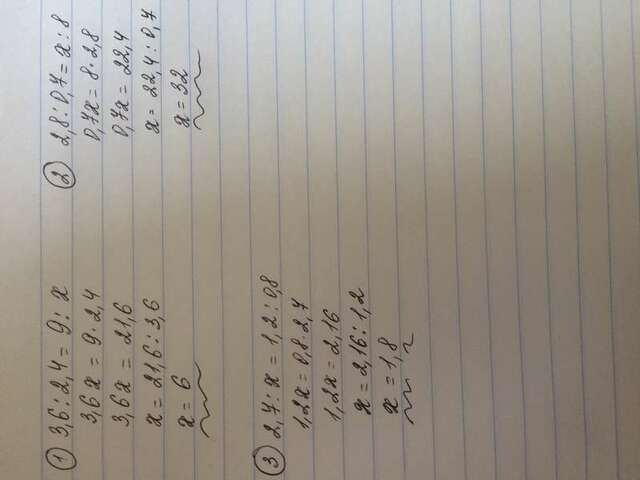 ① 3,6 : 2,4 = 9 : x
3,6 x = 9 · 2,4
3,6 x = 21,6
x = 21,6 : 3,6
x = 6
② 2,8 : 0,7 = x : 8
0,7x = 8 · 2,8
0,7x = 22,4
x = 22,4 : 0,7
x = 32
③ 2,7 : x = 1,2 : 0,8
1,2x = 0,8 · 2,7
1,2x = 2,16
x = 2,16 : 1,2
x = 1,8